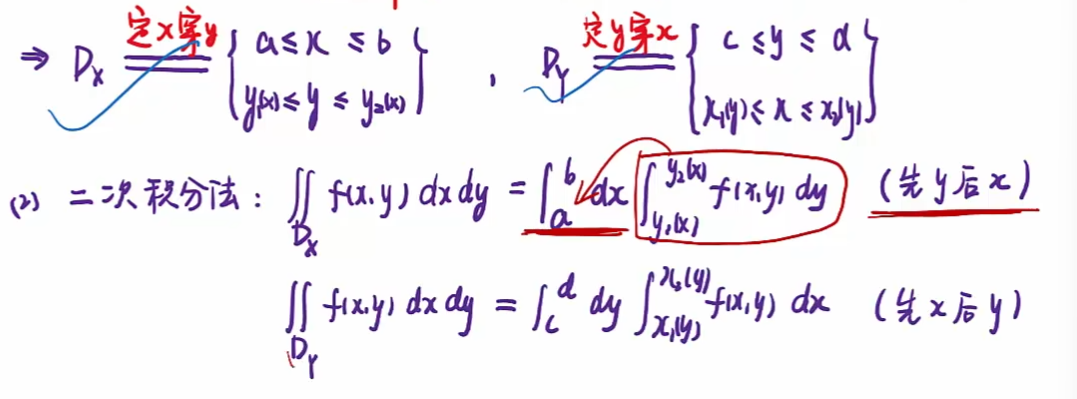 ⇒ D_X 定x穿y { a≤x≤b , D_Y 定y穿x { c≤y≤d
y₁(x)≤y≤y₂(x) } x₁(y)≤x≤x₂(y) }
(2) 二次积分法: ∬_{D_X} f(x,y) dxdy = ∫_a^b dx ∫_{y₁(x)}^{y₂(x)} f(x,y) dy (先y后x)
∬_{D_Y} f(x,y) dxdy = ∫_c^d dy ∫_{x₁(y)}^{x₂(y)} f(x,y) dx (先x后y)